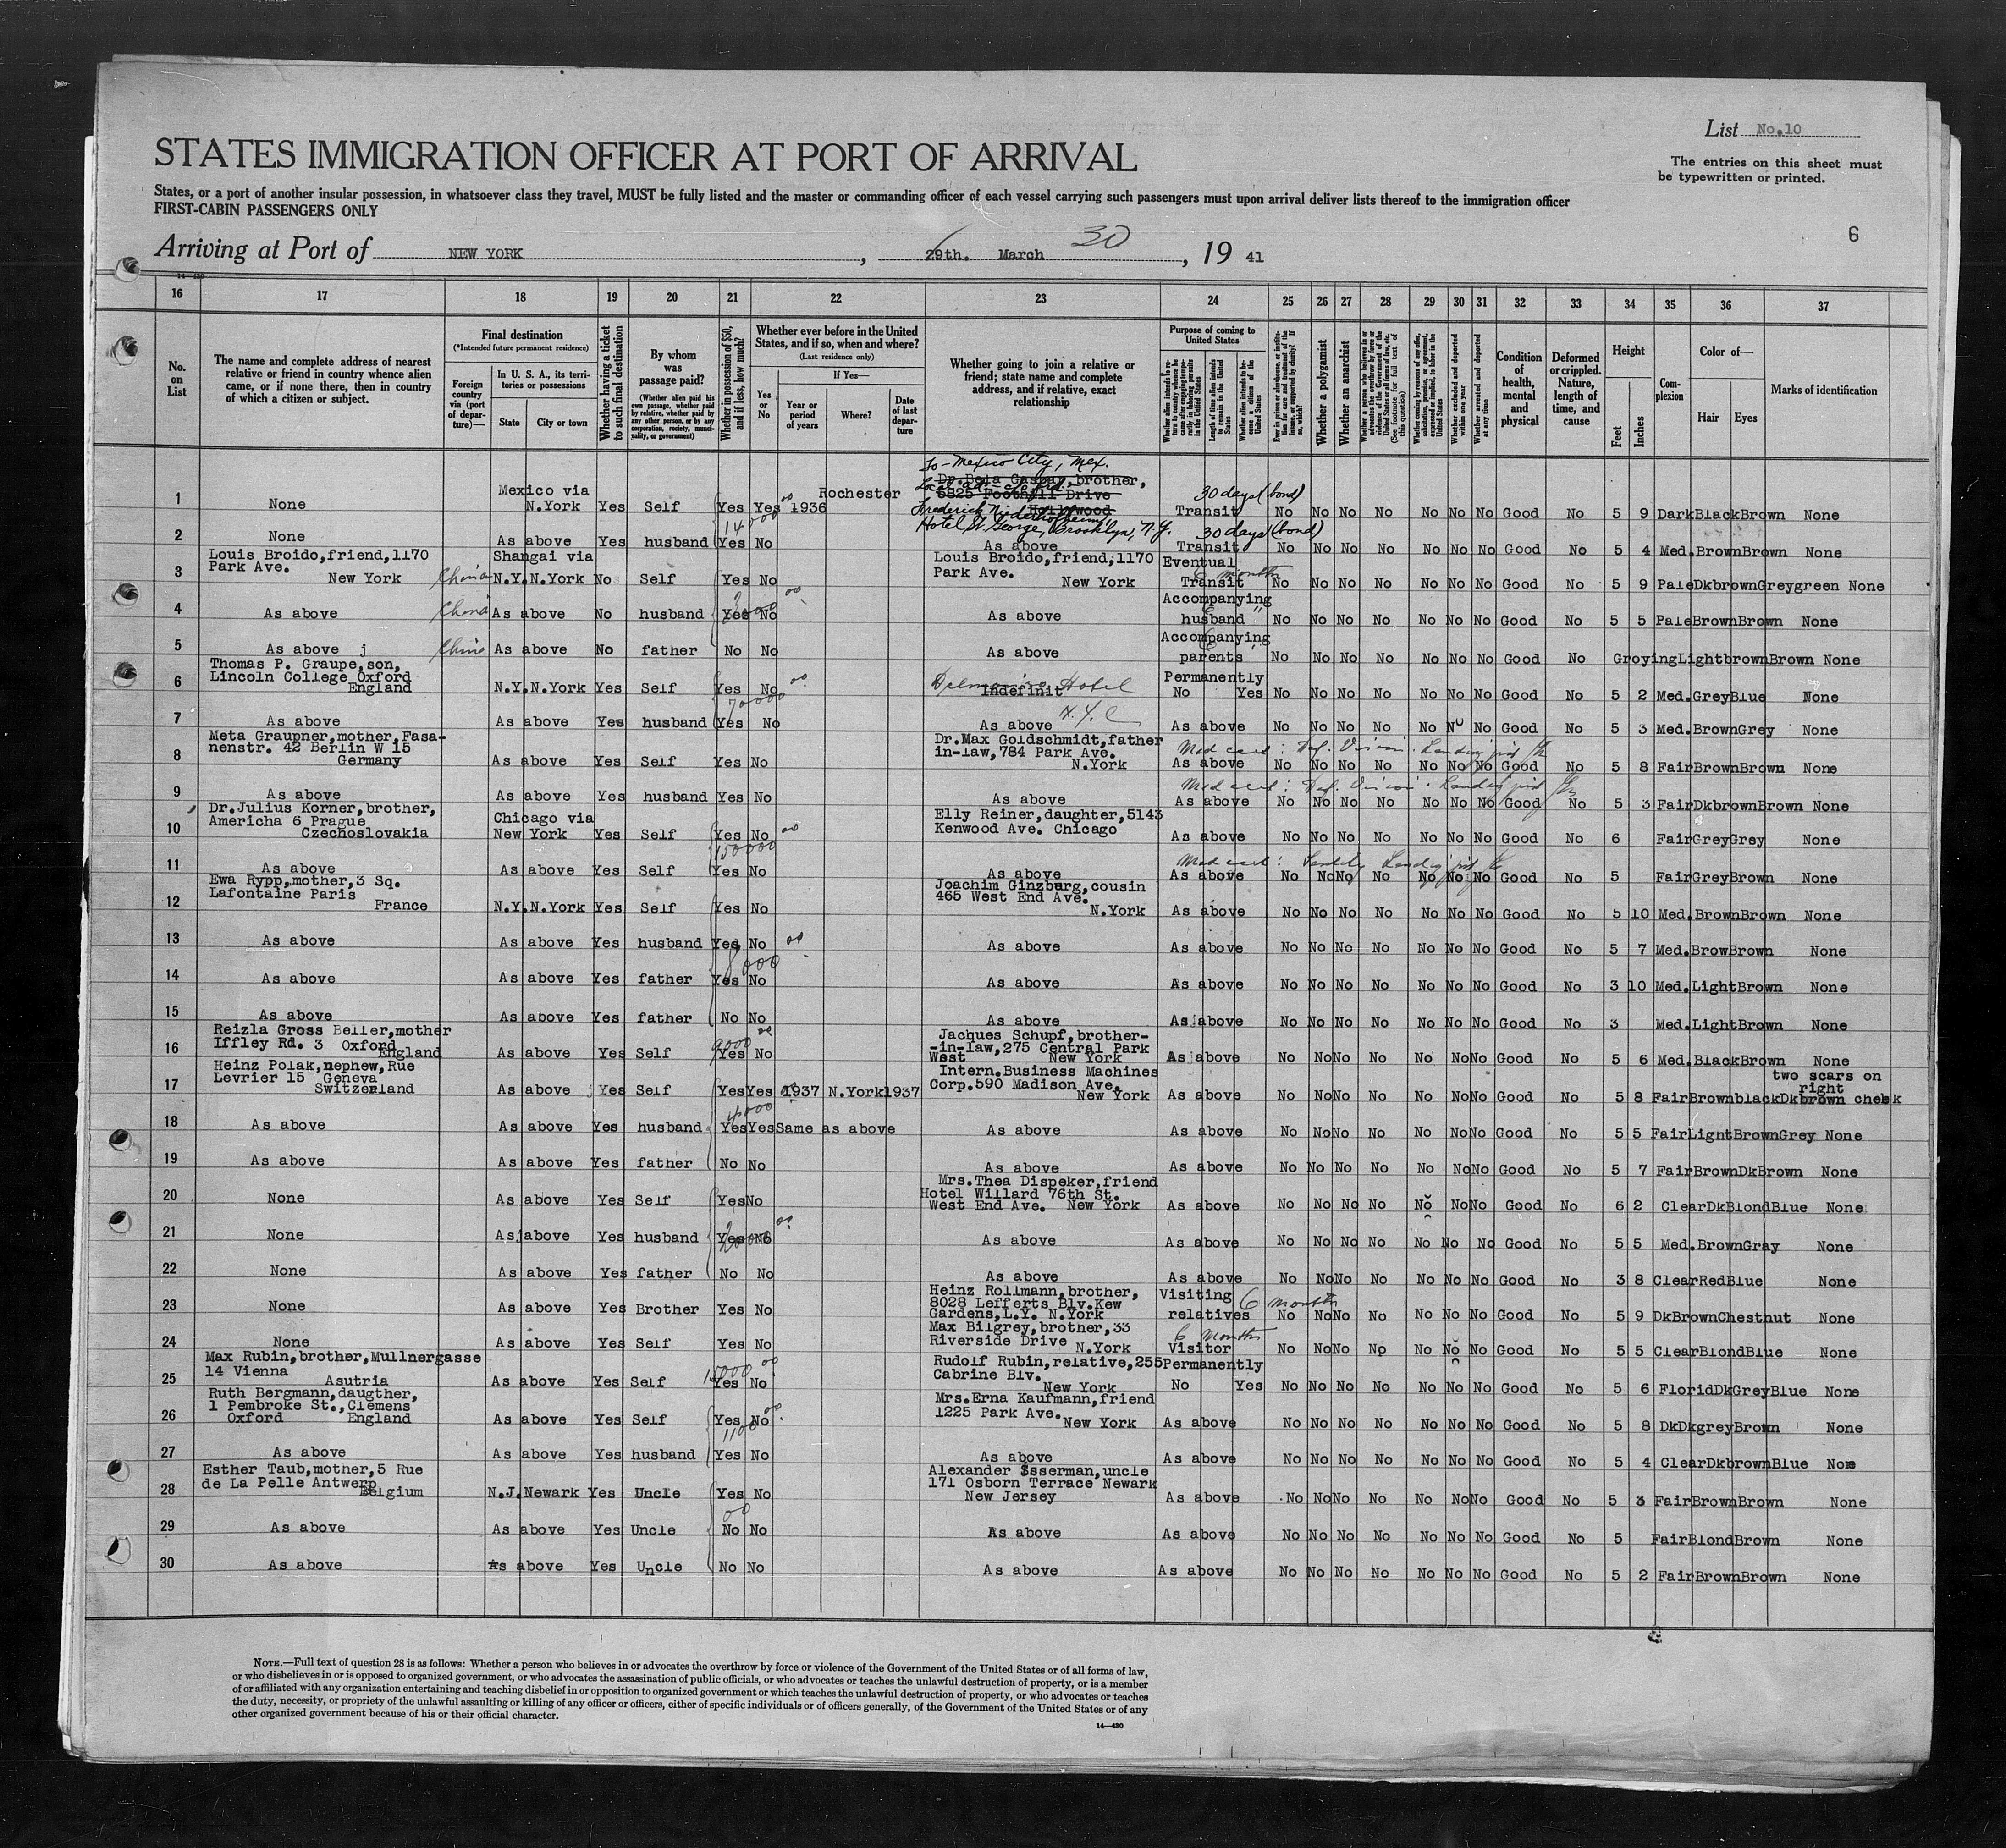 List No.10
STATES IMMIGRATION OFFICER AT PORT OF ARRIVAL
The entries on this sheet must
be typewritten or printed.
States, or a port of another insular possession, in whatsoever class they travel, MUST be fully listed and the master or commanding officer of each vessel carrying such passengers must upon arrival deliver lists thereof to the immigration officer
FIRST-CABIN PASSENGERS ONLY
6
Arriving at Port of NEW YORK, 29th. March 30, 19 41
16 17 18 19 20 21 22 23 24 25 26 27 28 29 30 31 32 33 34 35 36 37
No. on List
The name and complete address of nearest relative or friend in country whence alien came, or if none there, then in country of which a citizen or subject.
Final destination
(*Intended future permanent residence)
Foreign country via (port of departure)—
In U. S. A., its territories or possessions
State
City or town
Whether having a ticket to such final destination
By whom was passage paid?
(Whether alien paid his own passage, whether paid by relative, whether paid by any other person, or by any corporation, society, municipality, or government)
Whether in possession of $50, and if less, how much?
Whether ever before in the United States, and if so, when and where?
(Last residence only)
Yes or No
If Yes—
Year or period of years
Where?
Date of last departure
Whether going to join a relative or friend; state name and complete address, and if relative, exact relationship
Purpose of coming to United States
Whether alien intends to return to country whence he came after engaging temporarily in laboring pursuits in the United States
Length of time alien intends to remain in the United States
Whether alien intends to become a citizen of the United States
Ever in prison or almshouse, or institution for care and treatment of the insane, or supported by charity? If so, which?
Whether a polygamist
Whether an anarchist
Whether a person who believes in or advocates the overthrow by force or violence of the Government of the United States or all forms of law, etc. (See footnote for full text of this question)
Whether coming by reason of any offer, solicitation, promise, or agreement, expressed or implied, to labor in the United States
Whether excluded and deported within one year
Whether arrested and deported at any time
Condition of health, mental and physical
Deformed or crippled. Nature, length of time, and cause
Height
Feet
Inches
Complexion
Color of—
Hair
Eyes
Marks of identification
1 None Mexico via N.York Yes Self Yes Yes 1936 Rochester To - Mexico City, Mex. Dr. Bela Gaspar, brother, 5825 Foothill Drive Hollywood Frederick Hotel St. George, Brooklyn, N.Y. 30 days (bond) Transit No No No No No No No Good No 5 9 Dark Black Brown None
2 None As above Yes husband Yes 14000 No As above 30 days (bond) Transit No No No No No No No Good No 5 4 Med. Brown Brown None
3 Louis Broido, friend, 1170 Park Ave. New York China Shangai via N.Y. N.York No Self Yes No Louis Broido, friend, 1170 Park Ave. New York Eventual Transit 6 months No No No No No No No Good No 5 9 Pale Dkbrown Greygreen None
4 As above China As above No husband Yes No As above Accompanying husband " No No No No No No No Good No 5 5 Pale Brown Brown None
5 As above j China As above No father No No As above Accompanying parents " No No No No No No No Good No Groying Lightbrown Brown None
6 Thomas P. Graupe, son, Lincoln College Oxford England N.Y. N.York Yes Self Yes No Indefinit Hotel Permanently No Yes No No No No No No No Good No 5 2 Med. Grey Blue None
7 As above As above Yes husband Yes 70000 No As above N.Y.C As above No No No No No No No Good No 5 3 Med. Brown Grey None
8 Meta Graupner, mother, Fasanenstr. 42 Berlin W 15 Germany As above Yes Self Yes No Dr. Max Goldschmidt, father in-law, 784 Park Ave. N.York Med cert: Def. Vision. As above No No No No No No No Good No 5 8 Fair Brown Brown None
9 As above As above Yes husband Yes No As above Med cert: Def. Vision. As above No No No No No No No Good No 5 3 Fair Dkbrown Brown None
10 Dr. Julius Korner, brother, Americha 6 Prague Czechoslovakia Chicago via New York Yes Self Yes No Elly Reiner, daughter, 5143 Kenwood Ave. Chicago As above No No No No No No No Good No 6 Fair Grey Grey None
11 As above As above Yes Self 150000 Yes No As above Med cert: Senility As above No No No No No No No Good No 5 Fair Grey Brown None
12 Ewa Rypp, mother, 3 Sq. Lafontaine Paris France N.Y. N.York Yes Self Yes No Joachim Ginzburg, cousin 465 West End Ave. N.York As above No No No No No No No Good No 5 10 Med. Brown Brown None
13 As above As above Yes husband Yes No As above As above No No No No No No No Good No 5 7 Med. Brow Brown None
14 As above As above Yes father 8000 Yes No As above As above No No No No No No No Good No 3 10 Med. Light Brown None
15 As above As above Yes father No No As above As above No No No No No No No Good No 3 Med. Light Brown None
16 Reizla Gross Beller, mother Iffley Rd. 3 Oxford England As above Yes Self 9000 Yes No Jacques Schupf, brother--in-law, 275 Central Park West New York As above No No No No No No No Good No 5 6 Med. Black Brown None
17 Heinz Polak, nephew, Rue Levrier 15 Geneva Switzerland As above Yes Self Yes Yes 1937 N.York 1937 Intern. Business Machines Corp. 590 Madison Ave. New York As above No No No No No No No Good No 5 8 Fair Brownblack Dkbrown two scars on right cheek
18 As above As above Yes husband 4000 Yes Yes Same as above As above As above No No No No No No No Good No 5 5 Fair LightBrown Grey None
19 As above As above Yes father No No As above As above No No No No No No No Good No 5 7 Fair Brown DkBrown None
20 None As above Yes Self Yes No Mrs. Thea Dispeker, friend Hotel Willard 76th St. West End Ave. New York As above No No No No No No No Good No 6 2 Clear DkBlond Blue None
21 None As above Yes husband Yes No As above As above No No No No No No No Good No 5 5 Med. Brown Gray None
22 None As above Yes father No No As above As above No No No No No No No Good No 3 8 Clear Red Blue None
23 None As above Yes Brother Yes No Heinz Rollmann, brother, 8028 Lefferts Blv. Kew Gardens, L.Y. N.York Visiting relatives 6 months No No No No No No No Good No 5 9 Dk Brown Chestnut None
24 None As above Yes Self Yes No Max Bilgrey, brother, 33 Riverside Drive N.York 6 Months Visitor No No No No No No No Good No 5 5 Clear Blond Blue None
25 Max Rubin, brother, Mullnergasse 14 Vienna Asutria As above Yes Self 15000 Yes No Rudolf Rubin, relative, 255 Cabrine Blv. New York Permanently No Yes No No No No No No No Good No 5 6 Florid DkGrey Blue None
26 Ruth Bergmann, daugther, 1 Pembroke St., Clemens Oxford England As above Yes Self Yes No Mrs. Erna Kaufmann, friend 1225 Park Ave. New York As above No No No No No No No Good No 5 8 Dk Dkgrey Brown None
27 As above As above Yes husband Yes No As above As above No No No No No No No Good No 5 4 Clear Dkbrown Blue None
28 Esther Taub, mother, 5 Rue de La Pelle Antwerp Belgium N.J. Newark Yes Uncle Yes No Alexander Isserman, uncle 171 Osborn Terrace Newark New Jersey As above No No No No No No No Good No 5 3 Fair Brown Brown None
29 As above As above Yes Uncle No No As above As above No No No No No No No Good No 5 Fair Blond Brown None
30 As above As above Yes Uncle No No As above As above No No No No No No No Good No 5 2 Fair Brown Brown None
NOTE.—Full text of question 28 is as follows: Whether a person who believes in or advocates the overthrow by force or violence of the Government of the United States or of all forms of law,
or who disbelieves in or is opposed to organized government, or who advocates the assassination of public officials, or who advocates or teaches the unlawful destruction of property, or is a member
of or affiliated with any organization entertaining and teaching disbelief in or opposition to organized government or which teaches the unlawful destruction of property, or who advocates or teaches
the duty, necessity, or propriety of the unlawful assaulting or killing of any officer or officers, either of specific individuals or of officers generally, of the Government of the United States or of any
other organized government because of his or their official character.
14—430